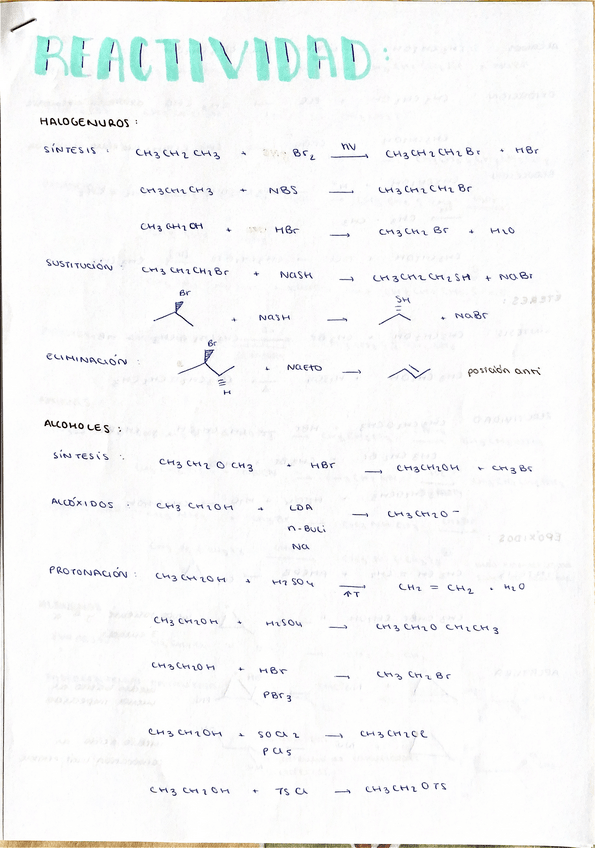 REACTIVIDAD:
HALOGENUROS:
SÍNTESIS: CH3CH2CH3 + Br2 hν→ CH3CH2CH2Br + HBr
CH3CH2CH3 + NBS → CH3CH2CH2Br
CH3CH2OH + HBr → CH3CH2Br + H2O
SUSTITUCIÓN: CH3CH2CH2Br + NaSH → CH3CH2CH2SH + NaBr
Br + NaSH → SH + NaBr
ELIMINACIÓN: Br H + NaEtO → posición anti
ALCOHOLES:
SÍNTESIS: CH3CH2OCH3 + HBr → CH3CH2OH + CH3Br
ALCÓXIDOS: CH3CH2OH + LDA → CH3CH2O-
n-BuLi
Na
PROTONACIÓN: CH3CH2OH + H2SO4 →↑T CH2 = CH2 + H2O
CH3CH2OH + H2SO4 → CH3CH2OCH2CH3
CH3CH2OH + HBr → CH3CH2Br
PBr3
CH3CH2OH + SOCl2 → CH3CH2Cl
PCl5
CH3CH2OH + TsCl → CH3CH2OTs